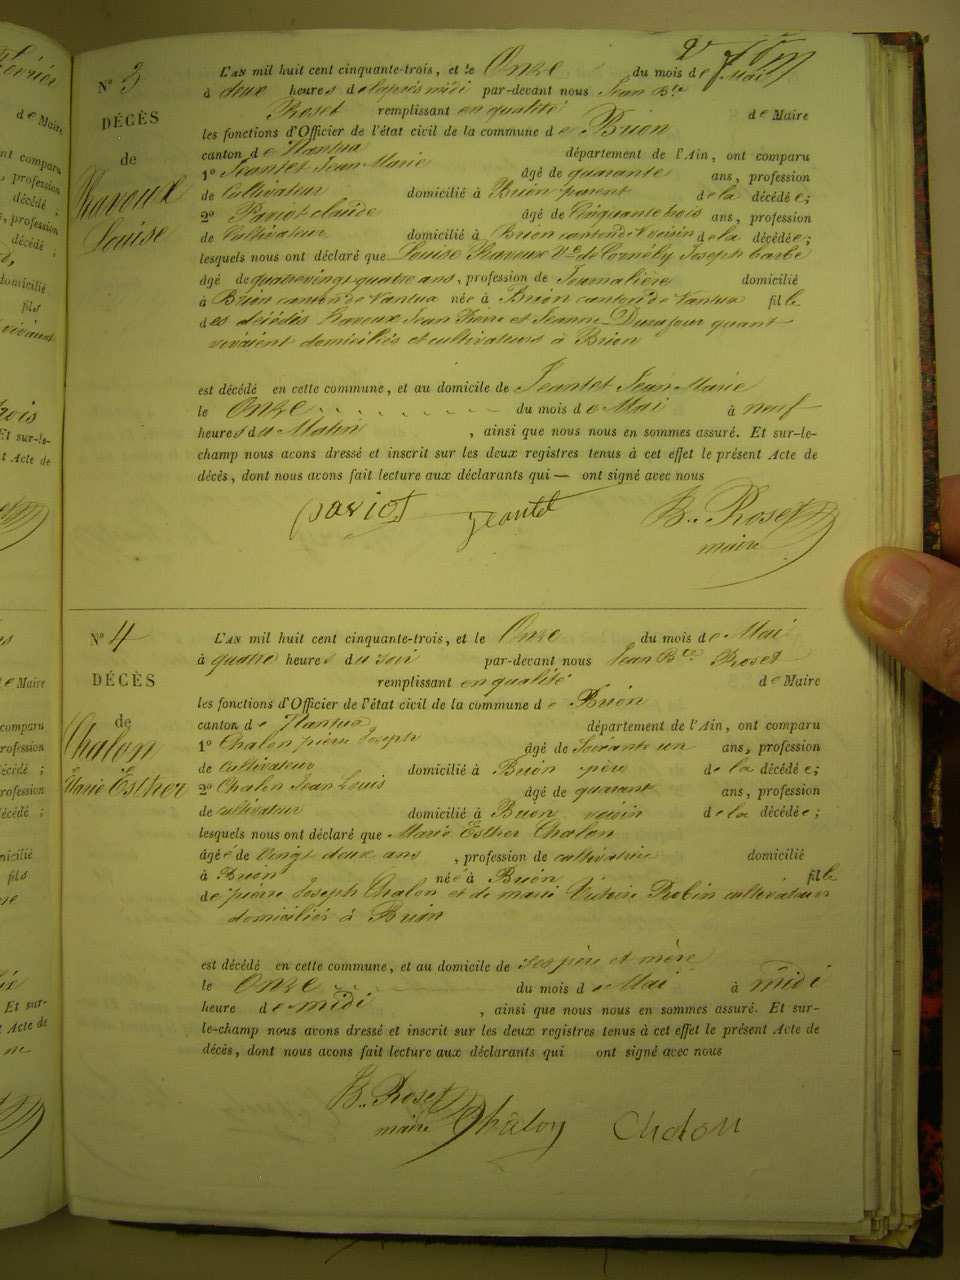 N° 3
DÉCÈS
de
Ravoux
Louise
L'AN mil huit cent cinquante-trois, et le Onze du mois de Mai
à deux heures de l'après midi par-devant nous Jean Bte
Roset remplissant en qualité de Maire
les fonctions d'Officier de l'état civil de la commune de Brion
canton de Nantua département de l'Ain, ont comparu
1° Jeantet Jean Marie âgé de quarante ans, profession
de Cultivateur domicilié à Brion parent de la décédée;
2° Paviot claude âgé de Cinquante trois ans, profession
de Cultivateur domicilié à Brion canton de voisin de la décédée;
lesquels nous ont déclaré que Louise Ravoux Ve de Joseph barbé
âgé de quatrevingt quatre ans, profession de Journalière domicilié
à Brion canton de Nantua née à Brion canton de Nantua fille
des décédés Ravoux Jean Pierre et Jeanne Durafour quant
vivaient domiciliés et cultivateurs à Brion
est décédé en cette commune, et au domicile de Jeantet Jean Marie
le Onze du mois de Mai à neuf
heures du Matin, ainsi que nous nous en sommes assuré. Et sur-le-
champ nous avons dressé et inscrit sur les deux registres tenus à cet effet le présent Acte de
décès, dont nous avons fait lecture aux déclarants qui — ont signé avec nous
paviot jeantet B. Roset
maire
N° 4
DÉCÈS
de
Chalon
Marie Esther
L'AN mil huit cent cinquante-trois, et le Onze du mois de Mai
à quatre heures du soir par-devant nous Jean Bte Roset
remplissant en qualité de Maire
les fonctions d'Officier de l'état civil de la commune de Brion
canton de Nantua département de l'Ain, ont comparu
1° Chalon pierre Joseph âgé de Soixante un ans, profession
de Cultivateur domicilié à Brion père de la décédée;
2° Chalon Jean Louis âgé de quarant ans, profession
de cultivateur domicilié à Brion voisin de la décédée;
lesquels nous ont déclaré que Marie Esther Chalon
âgée de Vingt deux ans, profession de cultivatrice domicilié
à Brion née à Brion fille
de pierre Joseph Chalon et de marie Victoire Robin cultivateurs
domiciliés à Brion
est décédé en cette commune, et au domicile de ses père et mère
le Onze du mois de Mai à midi
heure de midi, ainsi que nous nous en sommes assuré. Et sur-
le-champ nous avons dressé et inscrit sur les deux registres tenus à cet effet le présent Acte de
décès, dont nous avons fait lecture aux déclarants qui ont signé avec nous
B. Roset
maire Chalon Chalon